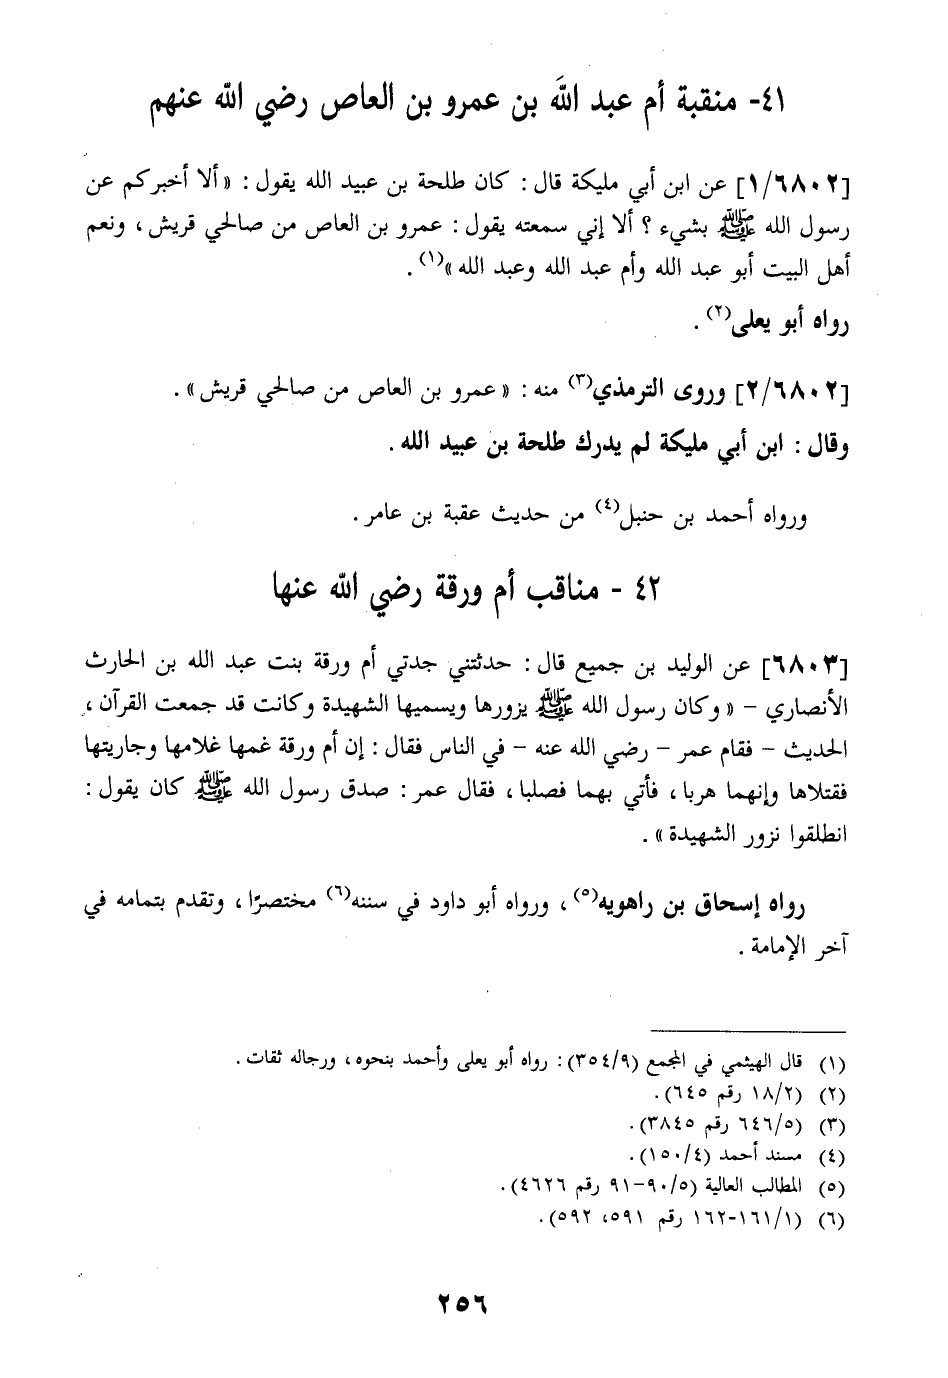 ٤١- منقبة أم عبد اللهَ بن عمرو بن العاص رضي الله عنهم
[١/٦٨٠٢] عن ابن أبي مليكة قال : كان طلحة بن عبيد الله يقول : « ألا أخبركم عن
رسول الله ﷺ بشيء ؟ ألا إني سمعته يقول : عمرو بن العاص من صالحي قريش ، ونعم
أهل البيت أبو عبد الله وأم عبد الله وعبد الله »(١) .
رواه أبو يعلى(٢) .
[٢/٦٨٠٢] وروى الترمذي(٣) منه : « عمرو بن العاص من صالحي قريش » .
وقال : ابن أبي مليكة لم يدرك طلحة بن عبيد الله .
ورواه أحمد بن حنبل(٤) من حديث عقبة بن عامر .
٤٢ - مناقب أم ورقة رضي الله عنها
[٦٨٠٣] عن الوليد بن جميع قال : حدثتني جدتي أم ورقة بنت عبد الله بن الحارث
الأنصاري – « وكان رسول الله ﷺ يزورها ويسميها الشهيدة وكانت قد جمعت القرآن ،
الحديث – فقام عمر – رضي الله عنه – في الناس فقال : إن أم ورقة غمها غلامها وجاريتها
فقتلاها وإنهما هربا ، فأتي بهما فصلبا ، فقال عمر : صدق رسول الله ﷺ كان يقول :
انطلقوا نزور الشهيدة » .
رواه إسحاق بن راهويه(٥) ، ورواه أبو داود في سننه(٦) مختصرًا ، وتقدم بتمامه في
آخر الإمامة .
(١) قال الهيثمي في المجمع (٣٥٤/٩) : رواه أبو يعلى وأحمد بنحوه ، ورجاله ثقات .
(٢) (١٨/٢ رقم ٦٤٥) .
(٣) (٦٤٦/٥ رقم ٣٨٤٥) .
(٤) مسند أحمد (١٥٠/٤) .
(٥) المطالب العالية (٩٠/٥-٩١ رقم ٤٦٢٦) .
(٦) (١٦١/١-١٦٢ رقم ٥٩١، ٥٩٢) .
٢٥٦